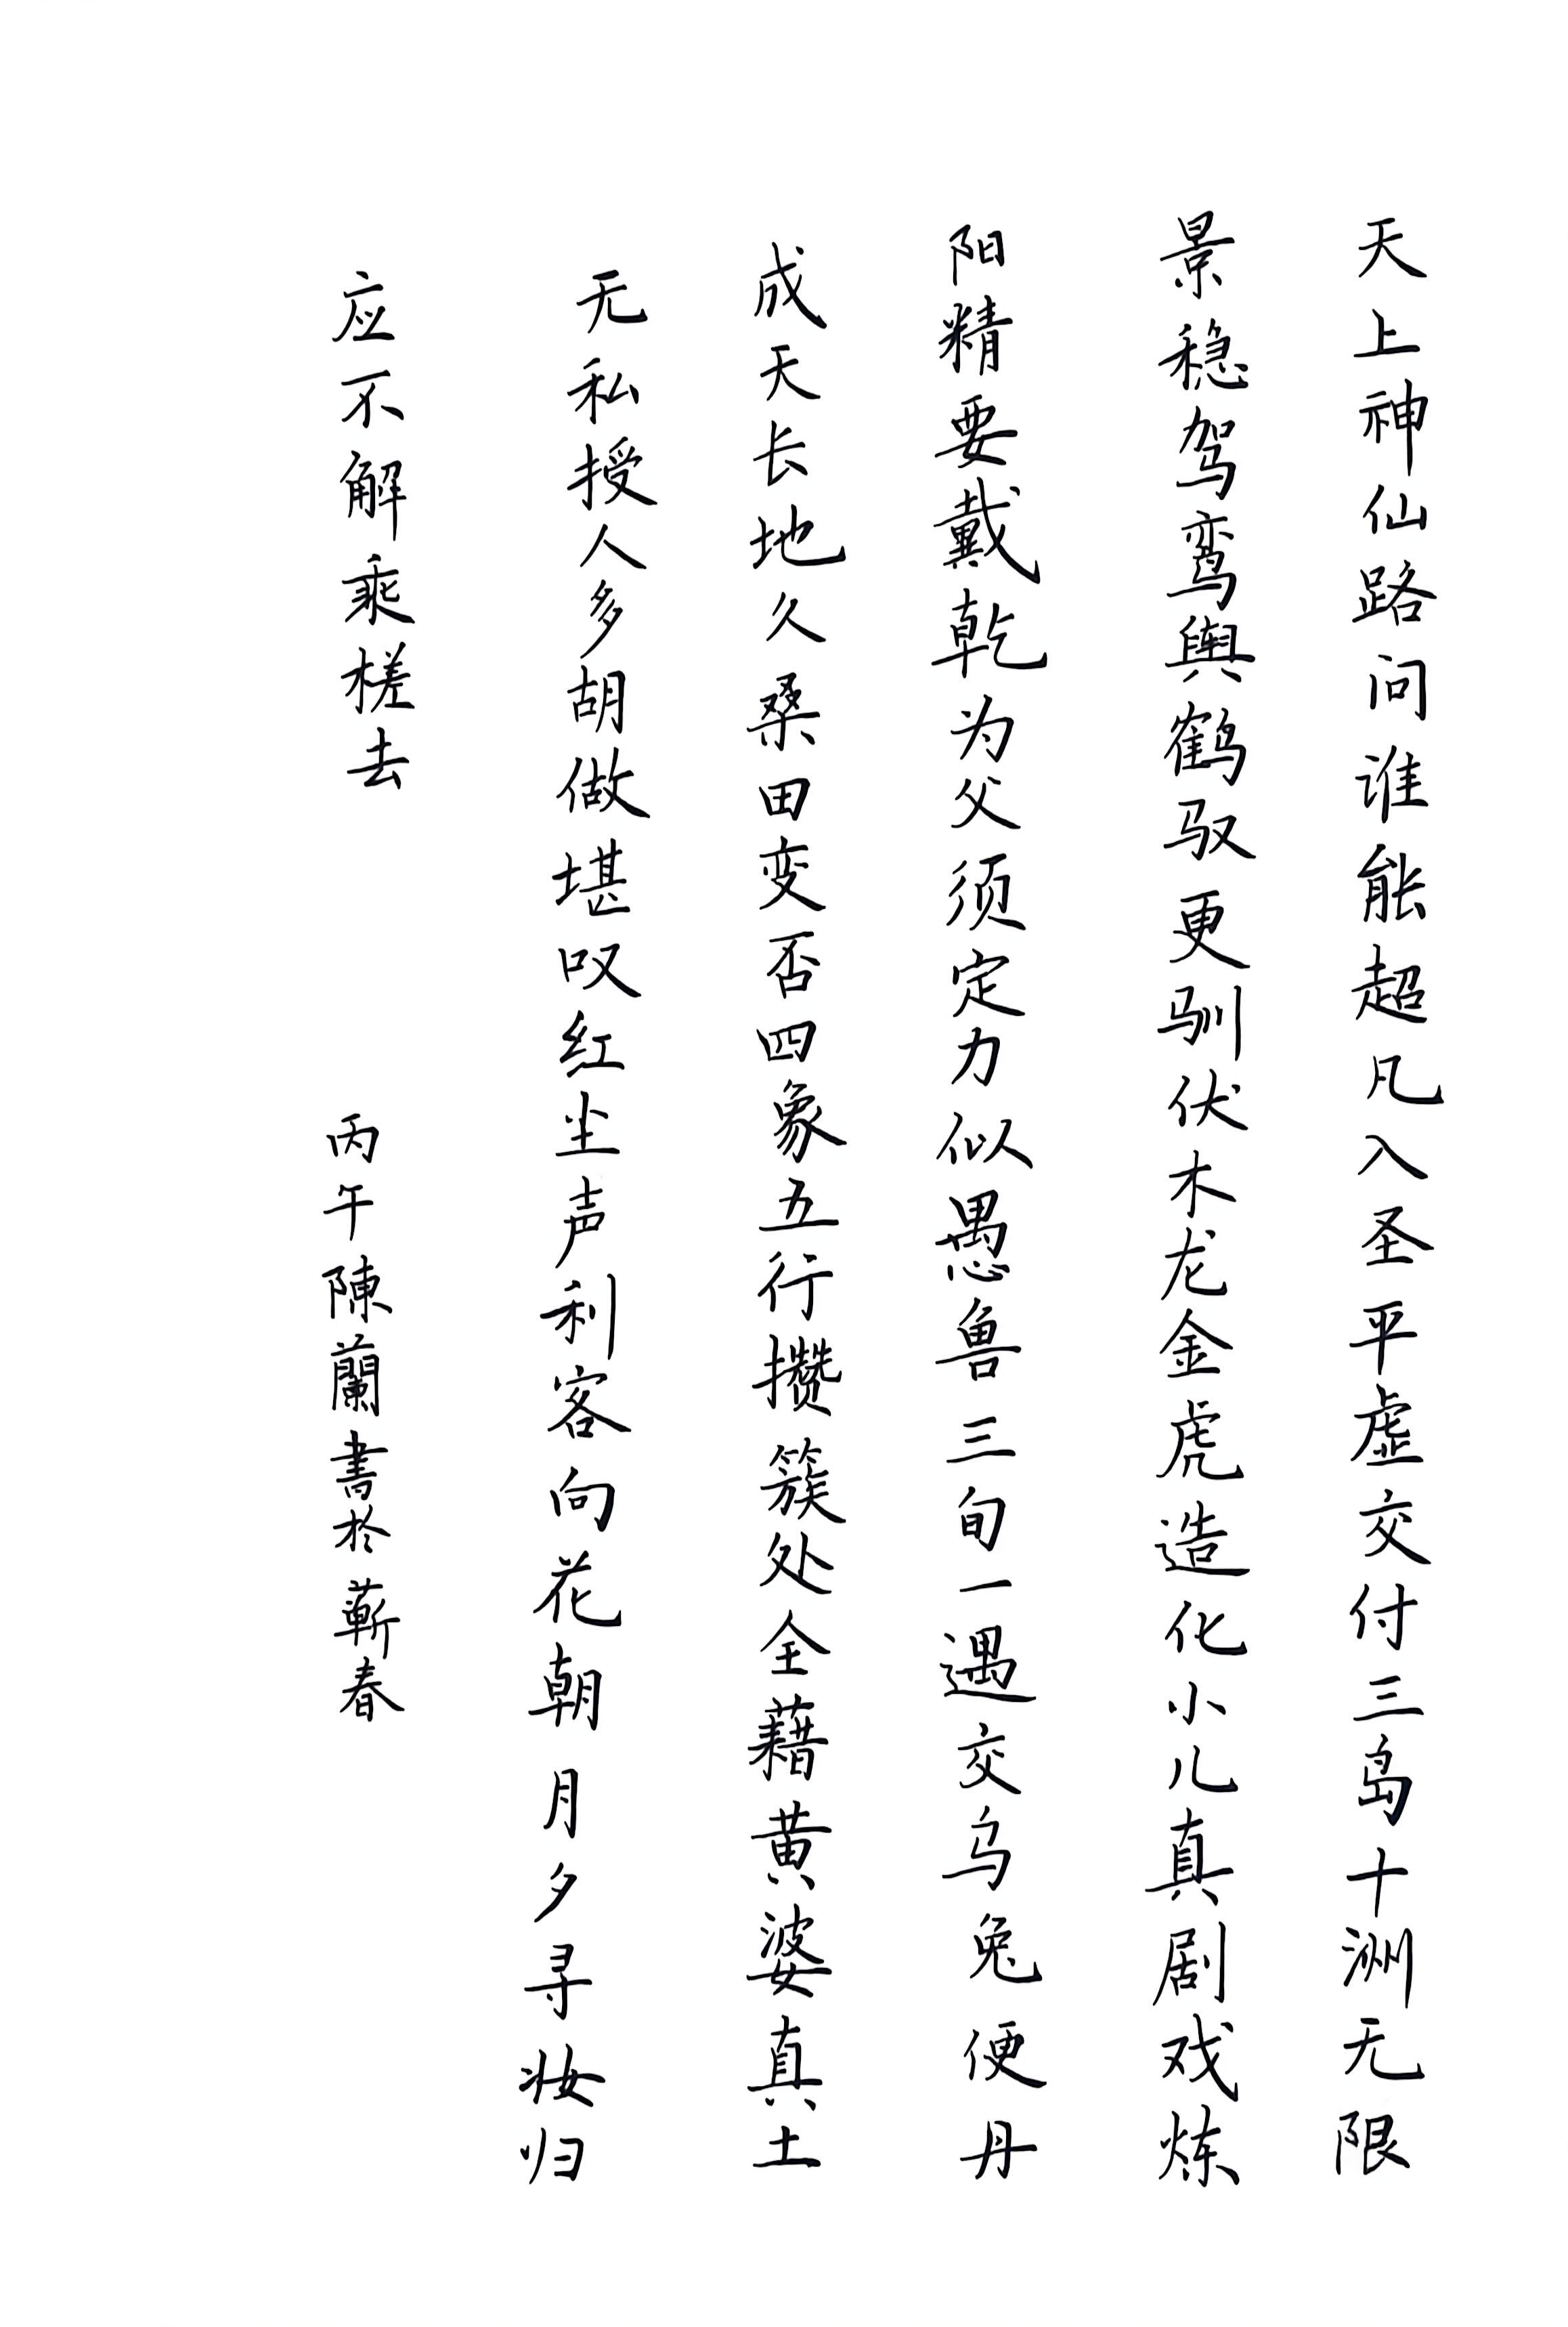 天上神仙路问谁能超凡入圣平虚交付三岛十洲无限
景稳驾鸾舆鹤驭更驯伏木龙金虎造化小儿真剧戏炼
阳精要戴乾为父须定力似愚鲁三旬一遇交乌兔便丹
成天长地久桑田变否四象五行攒簇处全藉黄婆真土
无私授人多胡做堪叹红尘声利客向花朝月夕寻妆归
应不解乘槎去
丙午陳蘭書於蘄春